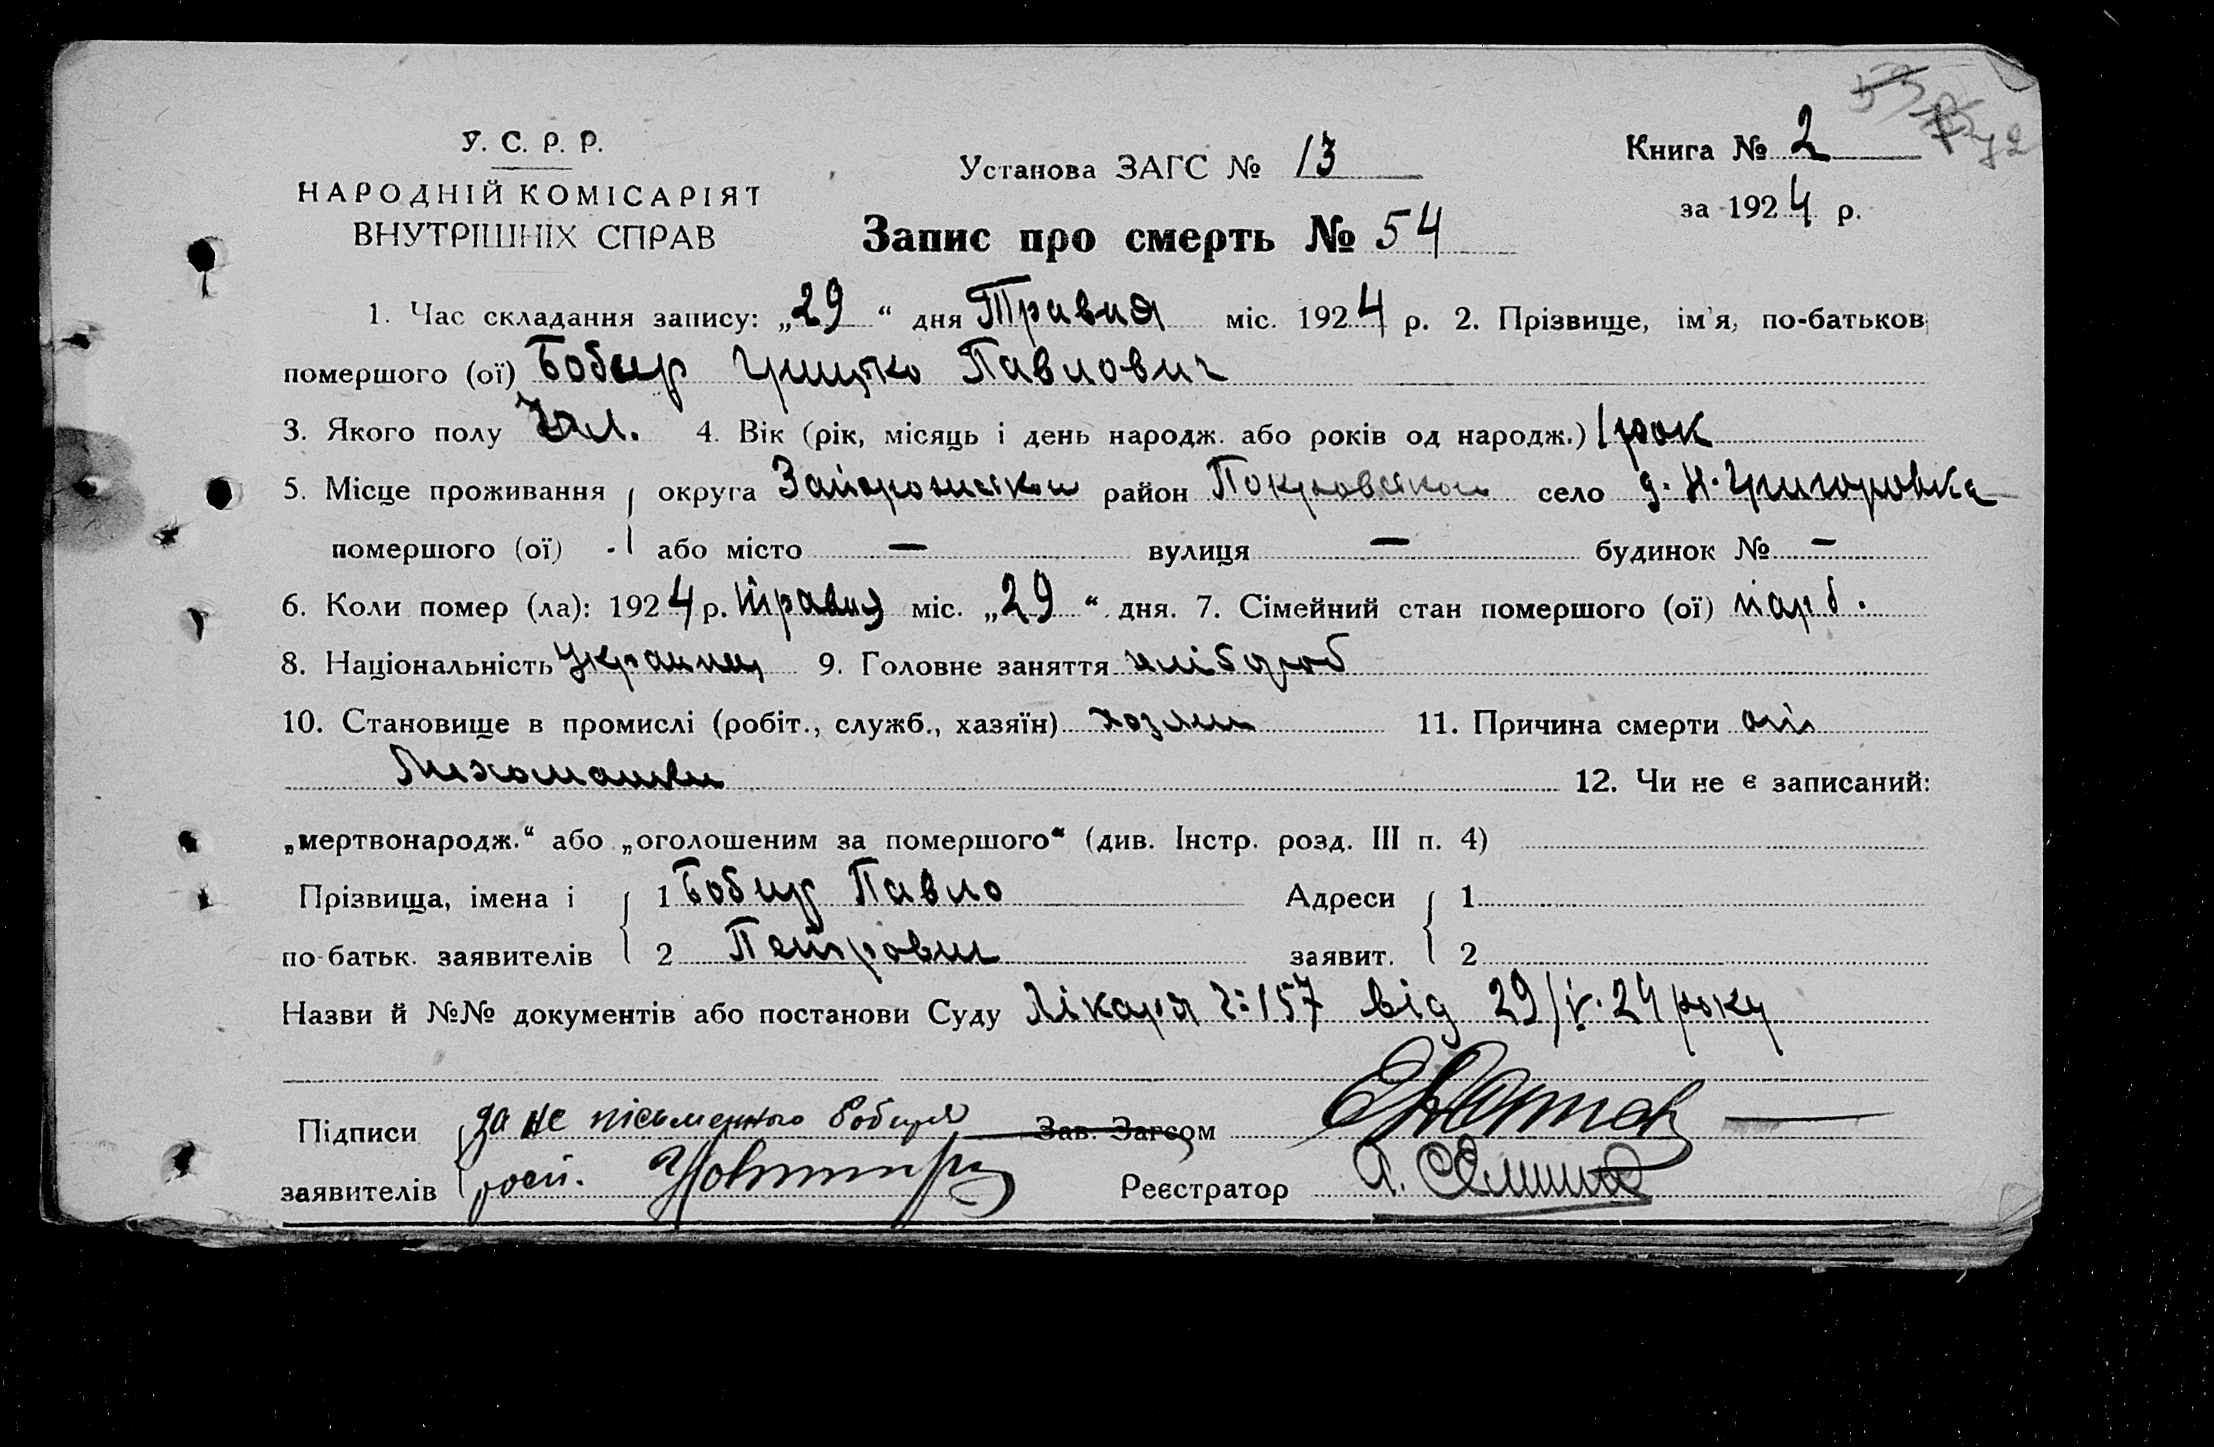 У. С. Р. Р.
НАРОДНІЙ КОМІСАРІЯТ
ВНУТРІШНІХ СПРАВ
Установа ЗАГС № 13
Книга № 2
за 1924 р.
Запис про смерть № 54
1. Час складання запису: „29“ дня Травня міс. 1924 р. 2. Прізвище, ім'я, по-батькові
помершого (ої) Бобир Грицько Павлович
3. Якого полу Чол. 4. Вік (рік, місяць і день народж. або років од народж.) 1 рок
5. Місце проживання округа район село д. Н. Григоровка
помершого (ої) або місто — вулиця — будинок № —
6. Коли помер (ла): 1924 р. травня міс. „29“ дня. 7. Сімейний стан помершого (ої) парб.
8. Національність Украинец 9. Головне заняття хлібороб
10. Становище в промислі (робіт., служб., хазяїн) хозяин 11. Причина смерти від
12. Чи не є записаний:
„мертвонародж.“ або „оголошеним за помершого“ (див. Інстр. розд. III п. 4)
Прізвища, імена і 1 Бобир Павло Адреси 1
по-батьк. заявителів 2 Петрович заявит. 2
Назви й №№ документів або постанови Суду Лікаря 157 від 29/V. 24 року
Підписи за не письменного Бобиря Зав. Загсом
заявителів росп. Реєстратор